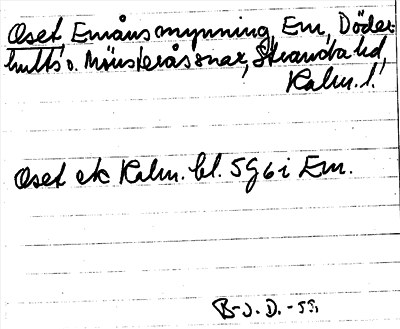 Oset Emåns mynning, Em, Döder-
hults o. Mönsterås snar, Stranda hd,
Kalm. l.
Oset ek Kalm. bl. 5 g 6 i Em.
B-J. D. -55.